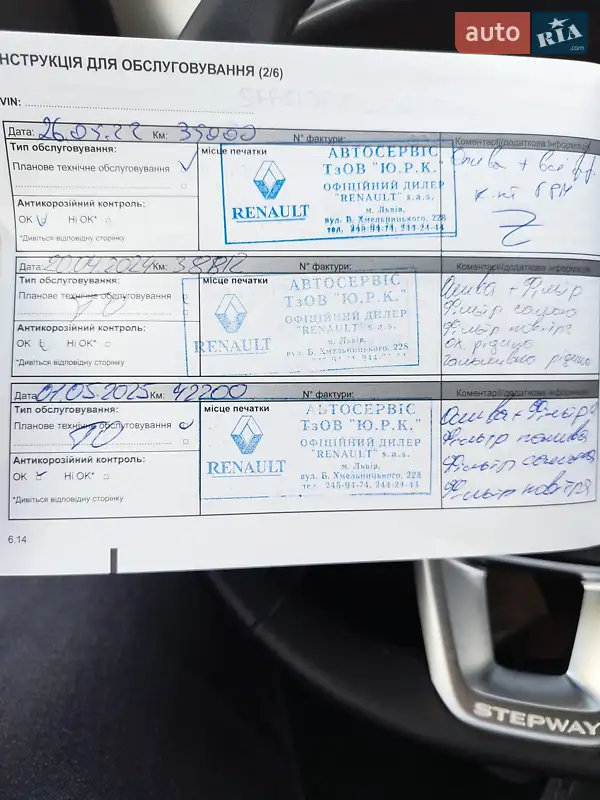 auto RIA.com
НСТРУКЦІЯ ДЛЯ ОБСЛУГОВУВАННЯ (2/6)
VIN:
Дата: 26.05.22 Км: 35000 N° фактури:
Коментарі/додаткова інформація
Тип обслуговування:
Планове технічне обслуговування
місце печатки
АВТОСЕРВІС
ТзОВ "Ю.Р.К."
ОФІЦІЙНИЙ ДИЛЕР
"RENAULT" s.a.s.
м. Львів,
вул. Б. Хмельницького, 228
тел. 245-94-74, 244-24-44
RENAULT
Олива + всі ф.
к-кт ГРМ
Антикорозійний контроль:
OK Ні OK*
*Дивіться відповідну сторінку
Дата: 20.04.2024 Км: 38812 N° фактури:
Коментарі/додаткова інформація
Тип обслуговування:
Планове технічне обслуговування
ТО
місце печатки
АВТОСЕРВІС
ТзОВ "Ю.Р.К."
ОФІЦІЙНИЙ ДИЛЕР
"RENAULT" s.a.s.
м. Львів,
вул. Б. Хмельницького, 228
RENAULT
Олива + Фільтр
Фільтр салону
Фільтр повітря
Ох рідина
Гальмівна рідина
Антикорозійний контроль:
OK Ні OK*
*Дивіться відповідну сторінку
Дата: 01.05.2025 Км: 42200 N° фактури:
Коментарі/додаткова інформація
Тип обслуговування:
Планове технічне обслуговування
ТО
місце печатки
АВТОСЕРВІС
ТзОВ "Ю.Р.К."
ОФІЦІЙНИЙ ДИЛЕР
"RENAULT" s.a.s.
м. Львів,
вул. Б. Хмельницького, 228
тел. 245-94-74, 244-24-44
RENAULT
Олива + Фільтр
Фільтр палива
Фільтр салона
Фільтр повітря
Антикорозійний контроль:
OK Ні OK*
*Дивіться відповідну сторінку
6.14
STEPWAY